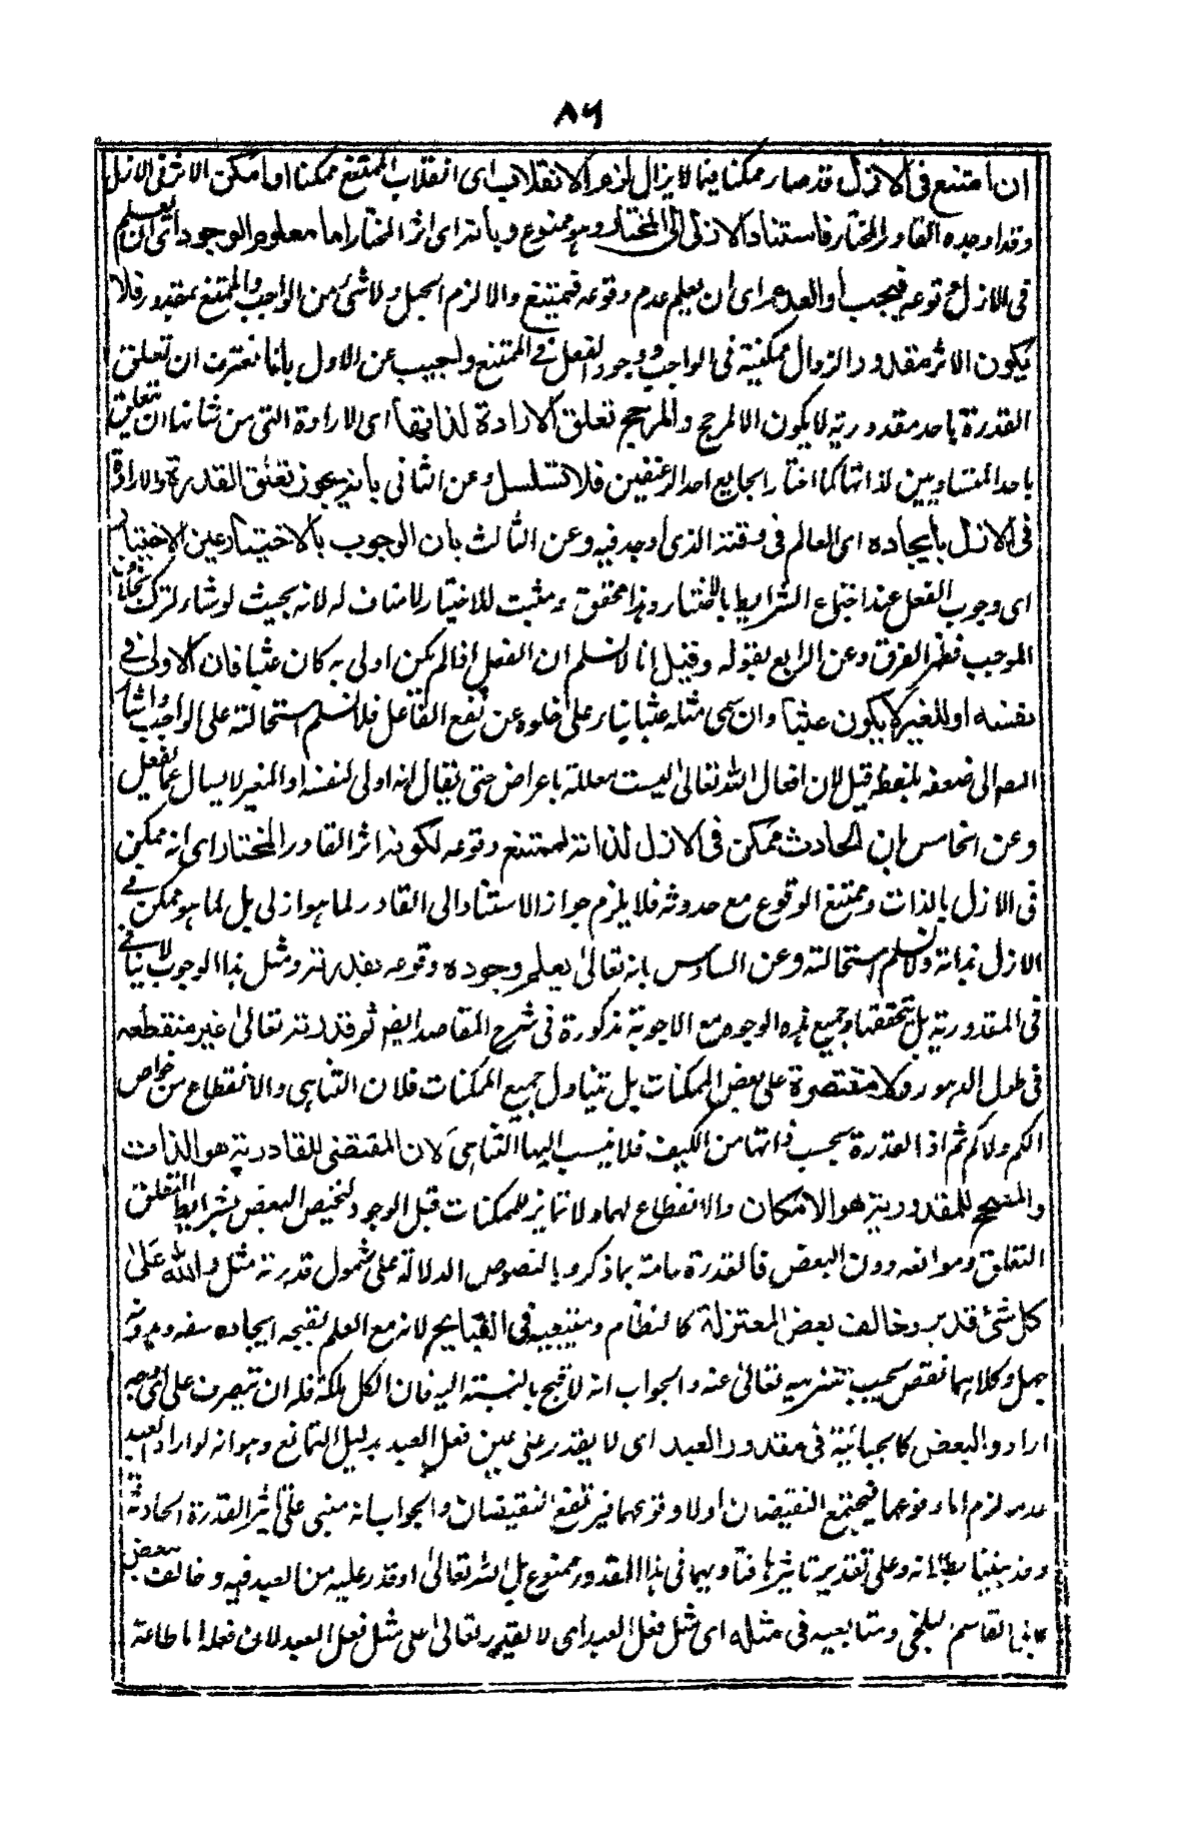 ٨٦
ان امتنع فى الازل قد صار ممكنا فيما لا يزال لزم الانقلاب اى انقلاب الممتنع ممكنا او امكن الاثر فى الازل
وقد اوجده القادر المختار فاستناد الازلى الى المختار وهو ممنوع وبانه اى اثر المختار اما معلوم الوجود اى ان يعلم
فى الازل وقوعه فيجب او العدم اى ان يعلم عدم وقوعه فيمتنع والا لزم الجهل ولا شئ من الواجب والممتنع بمقدور فلا
يكون الاثر مقدورا لزوال ممكنية فى الواجب ووجود الفعل فى الممتنع واجيب عن الاول بانا نعترف ان تعلق
القدرة باحد مقدوريه لا يكون الا لمرجح والمرجح تعلق الارادة لذاتها اى الارادة التى من شانها ان تتعلق
باحد المتساويين لذاتها كما اختار الجايع احد الرغيفين فلا تسلسل وعن الثانى بانه يجوز تعلق القدرة والارادة
فى الازل بايجاده اى العالم فى وقته الذى اوجد فيه وعن الثالث بان الوجوب بالاختيار عين الاختيار
اى وجوب الفعل عند اجتماع الشرايط بالاختيار وهذا محقق ومثبت للاختيار لا مناف له لانه بحيث لو شاء لترك بخلاف
الموجب فظهر الفرق وعن الرابع بقوله وقيل انا لا نسلم ان الفعل اذا لم يكن اولى به كان عبثا فان الاولى فى
نفسه او للغير لا يكون عبثا وان سمى مثله عبثا بناء على خلوه عن نفع الفاعل فلا نسلم استحالته على الواجب واشار
المص الى ضعفه بلفظ قيل لان افعال الله تعالى ليست معللة باغراض حتى يقال انه اولى لنفسه او لغيره لا يسال عما يفعل
وعن الخامس بان الحادث ممكن فى الازل لذاته ممتنع وقوعه لكونه اثر القادر المختار اى انه ممكن
فى الازل بالذات وممتنع الوقوع مع حدوثه فلا يلزم جواز الاستناد الى القادر لما هو ازلى بل لما هو ممكن فى
الازل بذاته ولا نسلم استحالته وعن السادس بانه تعالى يعلم وجوده ووقوعه بقدرته ومثل هذا الوجوب لا ينافى
فى المقدورية بل يحققها وجميع هذه الوجوه مع الاجوبة مذكورة فى شرح المقاصد ايضا ثم قدرته تعالى غير منقطعه
فى طول الدهور ولا مقتصرة على بعض الممكنات بل يتناول جميع الممكنات فلان التناهى والانقطاع من خواص
الكم ولا كم ثم اذ القدرة بحسب ذاتها من الكيف فلا ينسب اليها التناهى لان المقتضى للقادرية هو الذات
والمصحح للمقدورية هو الامكان والانقطاع لهما ولا تمايز للممكنات قبل الوجود لتخصيص البعض بشرايط التعلق
التعلق وموانعه دون البعض فالقدرة عامة بما ذكر وبالنصوص الدالة على شمول قدرته مثل والله على
كل شئ قدير وخالف بعض المعتزلة كالنظام ومتبعيه فى القبايح لانه مع العلم بقبحه ايجاده سفه وبدونه
جهل وكلاهما نقص يجب تنزيهه تعالى عنه والجواب انه لا قبح بالنسبة اليه فان الكل ملكه فله ان يتصرف على اى وجه
اراد والبعض كالجبائية فى مقدور العبد اى لا يقدر على عين فعل العبد بدليل التمانع وهو انه لو اراد العبد
عدمه لزم اما وقوعهما فيجتمع النقيضان اولا وقوعهما فيرتفع النقيضان والجواب انه مبنى على تاثير القدرة الحادثة
وقد بينا بطلانه وعلى تقدير تاثيرها فتساويهما فى هذا المقدور ممنوع بل الله تعالى اقدر عليه من العبد فيه وخالف بعض
كابى القاسم البلخى ومتابعيه فى مثله اى مثل فعل العبد اى لا يقدر تعالى على مثل فعل العبد لان فعله اما طاعة